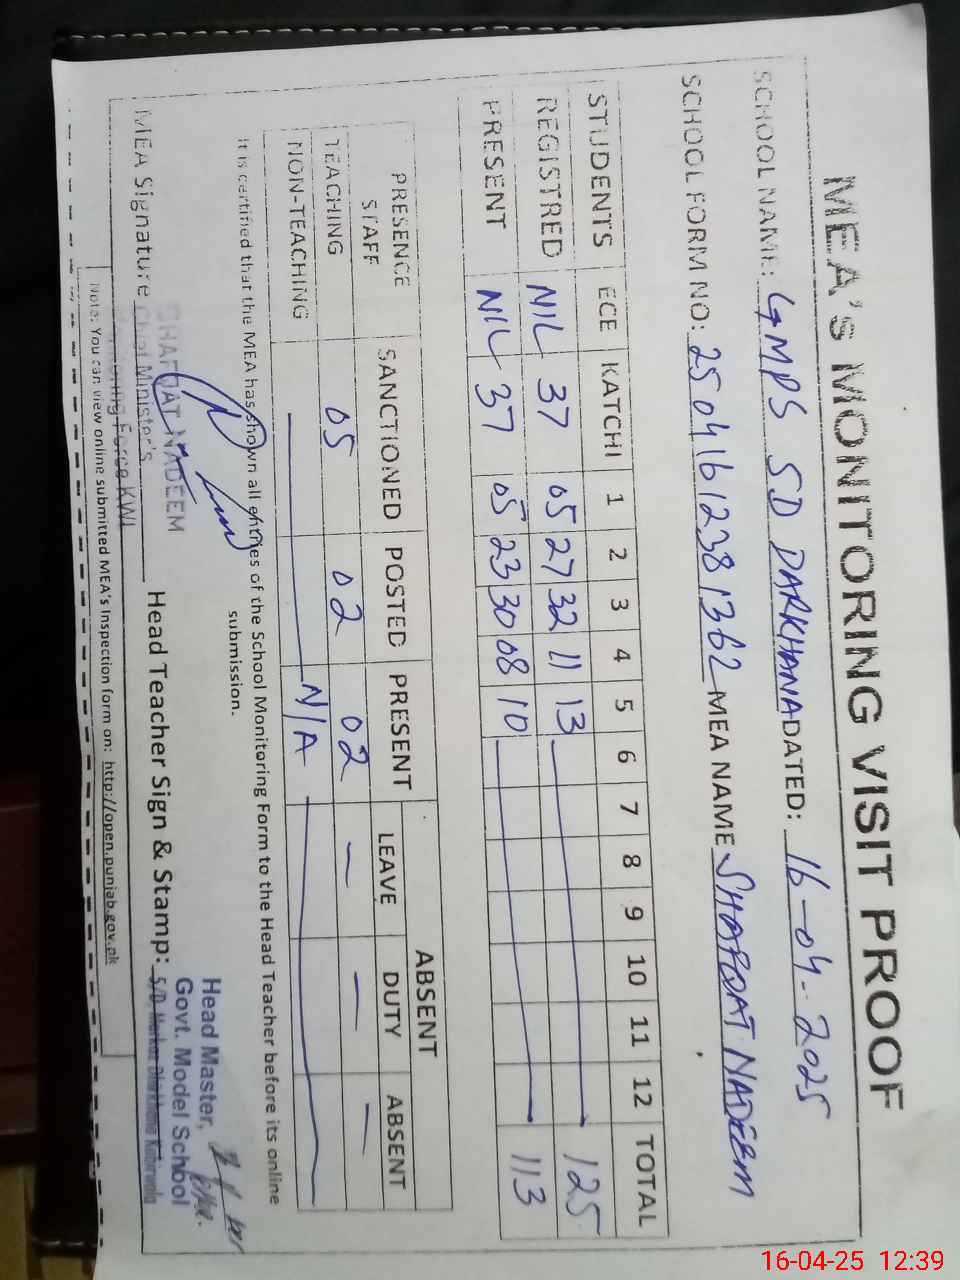 MEA's MONITORING VISIT PROOF
SCHOOL NAME: GMPS SD DARKHANA DATED: 16-04-2025
SCHOOL FORM NO: 25041612381362 MEA NAME SHAFQAT NADEEM
STUDENTS ECE KATCHI 1 2 3 4 5 6 7 8 9 10 11 12 TOTAL
REGISTRED NIL 37 05 27 32 11 13 125
PRESENT NIL 37 05 23 30 08 10 113
PRESENCE STAFF SANCTIONED POSTED PRESENT ABSENT
LEAVE DUTY ABSENT
TEACHING 05 02 02 – – –
NON-TEACHING N/A
It is certified that the MEA has shown all entries of the School Monitoring Form to the Head Teacher before its online
submission.
SHAFQAT NADEEM
MEA Signature Chief Minister's Head Teacher Sign & Stamp:
Monitoring Force KWL
Head Master,
Govt. Model School
S/D, Markaz Dharkhana Kabirwala
Note: You can view online submitted MEA's Inspection form on: http://open.punjab.gov.pk
16-04-25 12:39